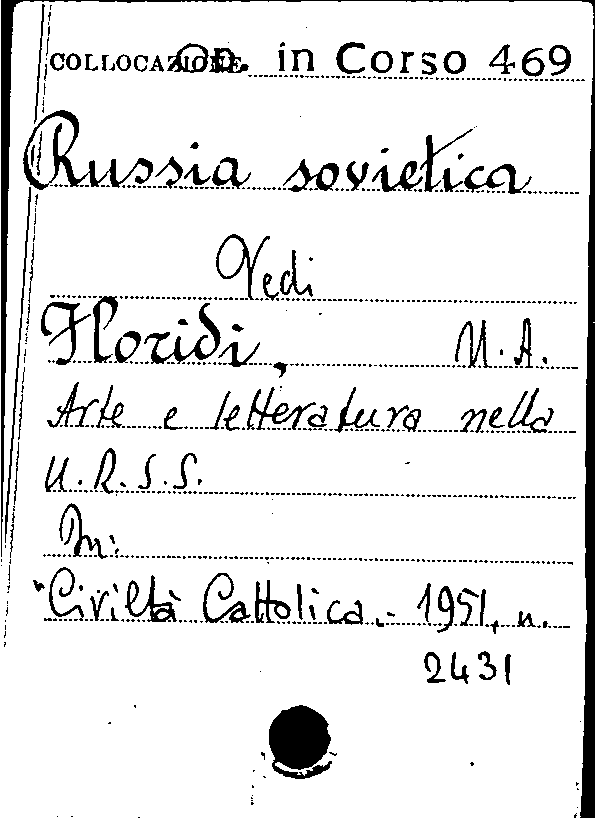 COLLOCAZIONE Op. in Corso 469
Russia sovietica
Vedi
Floridi, U.A.
Arte e letteratura nella
U.R.S.S.
In:
"Civiltà Cattolica.- 1951, n.
2431